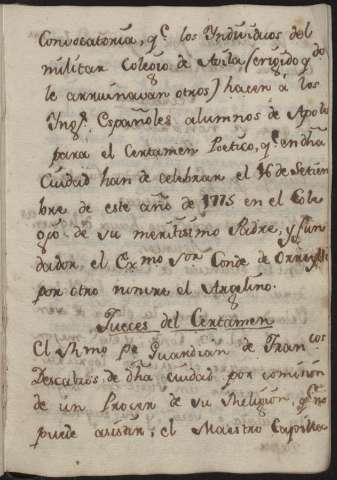 Convocatoria, q.e los Yndividuos del
militar Colegio de Avila, (erigido q.do
le arruinavan otros) hacen â los
Yng.s Españoles alumnos de Apolo
para el Certamen Poetico, q.e en dha
Ciudad han de celebrar el 16 de Setiem
bre de este año de 1775 en el Cole
gio de su meritissimo Padre, y fun
dador el Exmo Sor Conde de Orreylli
por otro nombre el Argelino.
Jueces del Certamen
El Rmo Pe Guardian de Francos
Descalzos de dha ciudad por comision
de un Procer de su Religion, q.e no
puede asistir; el Maestro Capilla